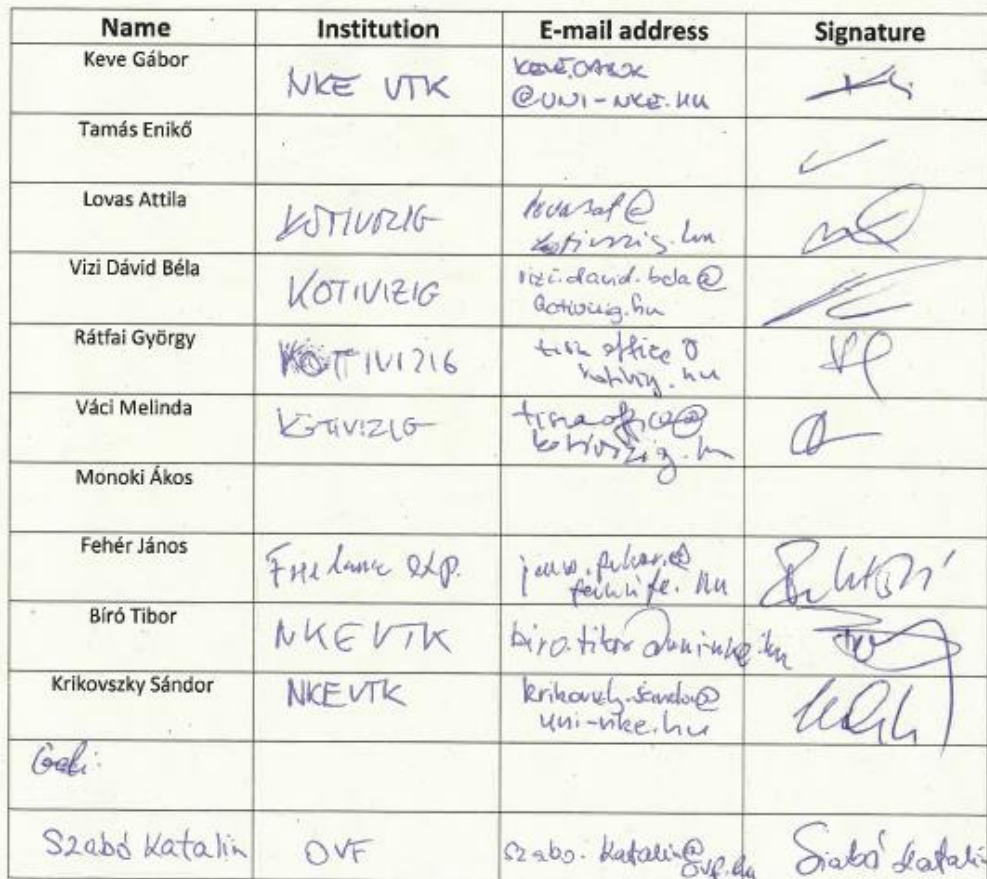 Name Institution E-mail address Signature
Keve Gábor NKE VTK KEVE.GABOR
@UNI-NKE.HU
Tamás Enikő
Lovas Attila KOTIVIZIG lovasat@
kotivizig.hu
Vizi Dávid Béla KOTIVIZIG vizi.david.bela@
kotivizig.hu
Rátfai György KOTIVIZIG tisza office
kotivizig.hu
Váci Melinda KOTIVIZIG tiszaoffice@
kotivizig.hu
Monoki Ákos
Fehér János Freelance exp.
Bíró Tibor NKE VTK biro.tibor@uni-nke.hu
Krikovszky Sándor NKE VTK krikovszky.sandor@
uni-nke.hu
Szabó Katalin OVF szabo.katalin@ Szabó Katalin
ovf.hu